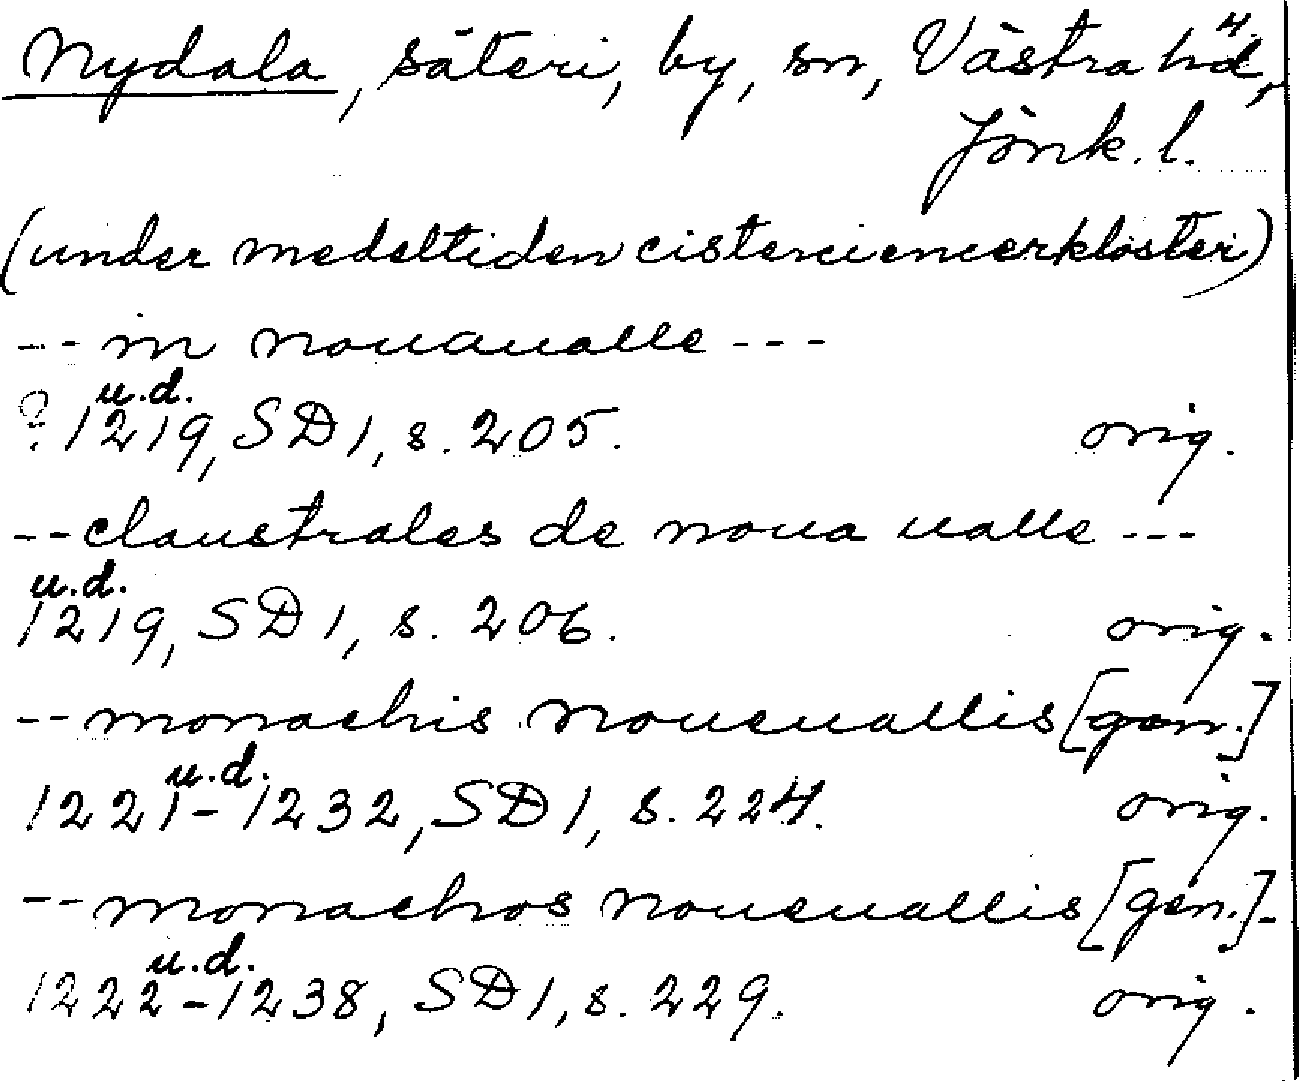 Nydala, säteri, by, sn, Västra hd,
Jönk. l.
(under medeltiden cistercienserkloster)
-- in nouaualle ---
u.d.
? 1219, SD 1, s. 205. orig.
-- claustrales de noua ualle ---
u.d.
1219, SD 1, s. 206. orig.
-- monachis noueuallis [gen.]
u.d.
1221-1232, SD 1, s. 224. orig.
-- monachos noueuallis [gen.]-
u.d.
1222-1238, SD 1, s. 229. orig.